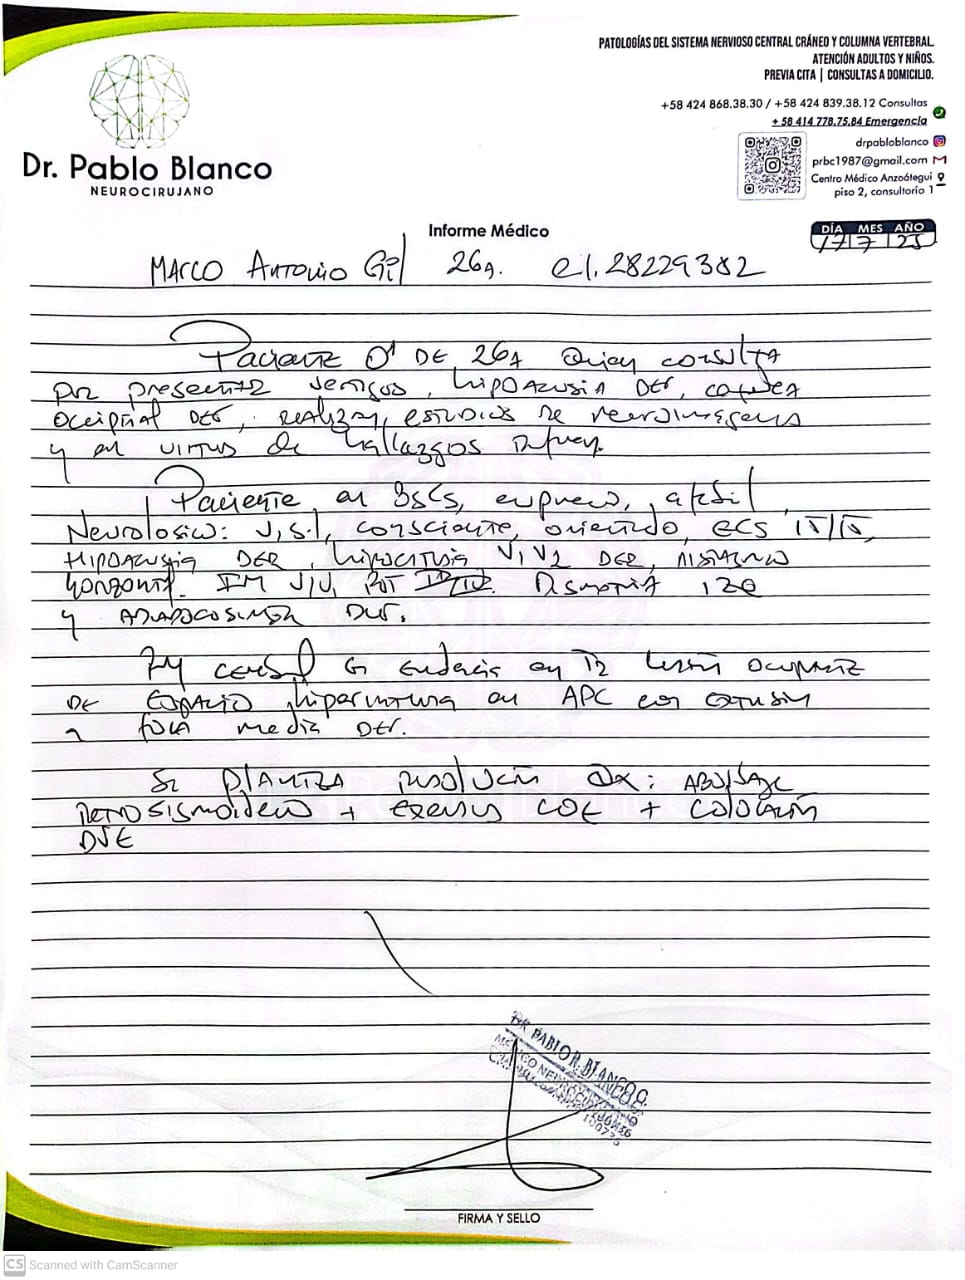 PATOLOGÍAS DEL SISTEMA NERVIOSO CENTRAL CRÁNEO Y COLUMNA VERTEBRAL.
ATENCIÓN ADULTOS Y NIÑOS.
PREVIA CITA | CONSULTAS A DOMICILIO.
+58 424 868.38.30 / +58 424 839.38.12 Consultas
+ 58 414 778.75.84 Emergencia
drpabloblanco
prbc1987@gmail.com
Centro Médico Anzoátegui
piso 2, consultorio 1
Dr. Pablo Blanco
NEUROCIRUJANO
Informe Médico
DÍA MES AÑO
17 7 25
Marco Antonio Gil 26a. CI. 28229382
Paciente ♂ de 26a quien consulta
por presentar vertigos, hipoacusia der, cefalea
occipital der, realizan estudios de neuroimagenes
y en virtud de hallazgos
Paciente en BsCs, eupneico, afebril
Neurologico: V, s.l, consciente, orientado, ECS
Hipoacusia der, V1 V2 der, nistagmo
horizontal. FM V/V, ROT II/IV. Dismetria izq
y
cerebral se evidencia en T2 lesión ocupante
de espacio hiperintensa en APC con extensión
a fosa media der.
Se plantea resolución Qx: Abordaje
Retrosigmoideo + exeresis LOE + colocación
DVE
DR. PABLO R. BLANCO C.
MÉDICO NEUROCIRUJANO
FIRMA Y SELLO
CS Scanned with CamScanner